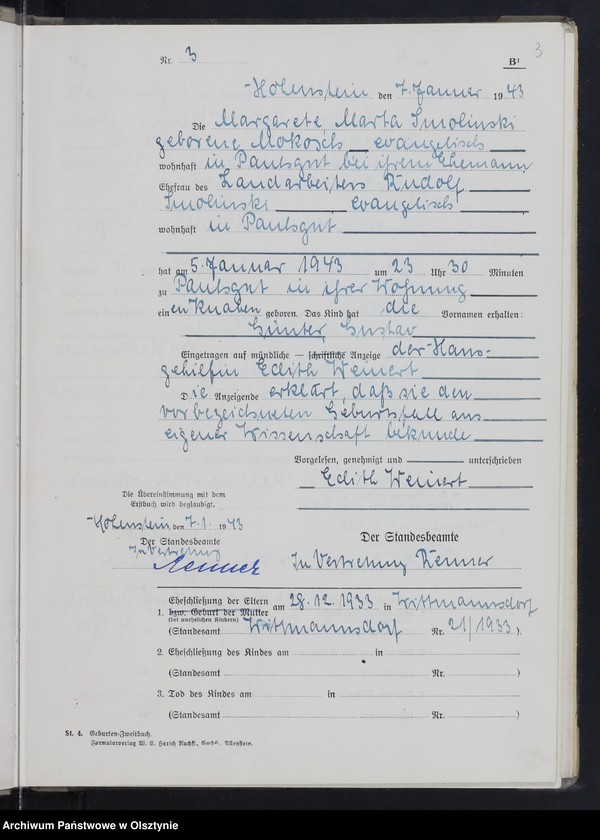 3
Nr. 3 B¹
Hohenstein den 7. Januar 1943
Die Margarete Marta Smolinski
geborene Mokosch evangelisch
wohnhaft in Pautsgut bei ihrem Ehemann
Ehefrau des Landarbeiters Rudolf
Smolinski evangelisch
wohnhaft in Pautsgut
hat am 5. Januar 1943 um 23 Uhr 30 Minuten
zu Pautsgut in ihrer Wohnung
einen Knaben geboren. Das Kind hat die Vornamen erhalten:
Günter Gustav
Eingetragen auf mündliche — schriftliche Anzeige der Haus-
gehilfin Edith Weinert
Die Anzeigende erklärt, daß sie den
vorbezeichneten Geburtsfall aus
eigener Wissenschaft bekunde
Vorgelesen, genehmigt und unterschrieben
Edith Weinert
Die Übereinstimmung mit dem
Erstbuch wird beglaubigt.
Hohenstein, den 7.1. 1943
Der Standesbeamte
In Vertretung
Der Standesbeamte
In Vertretung
1. Eheschließung der Eltern am 28.12.1933 in Wittmannsdorf
bzw. Geburt der Mutter
(bei unehelichen Kindern)
(Standesamt Wittmannsdorf Nr. 21/1933.)
2. Eheschließung des Kindes am in
(Standesamt Nr. )
3. Tod des Kindes am in
(Standesamt Nr. )
St. 4. Geburten-Zweitbuch.
Formularverlag W. E. Harich Nachfl., GmbH. Allenstein.
Archiwum Państwowe w Olsztynie